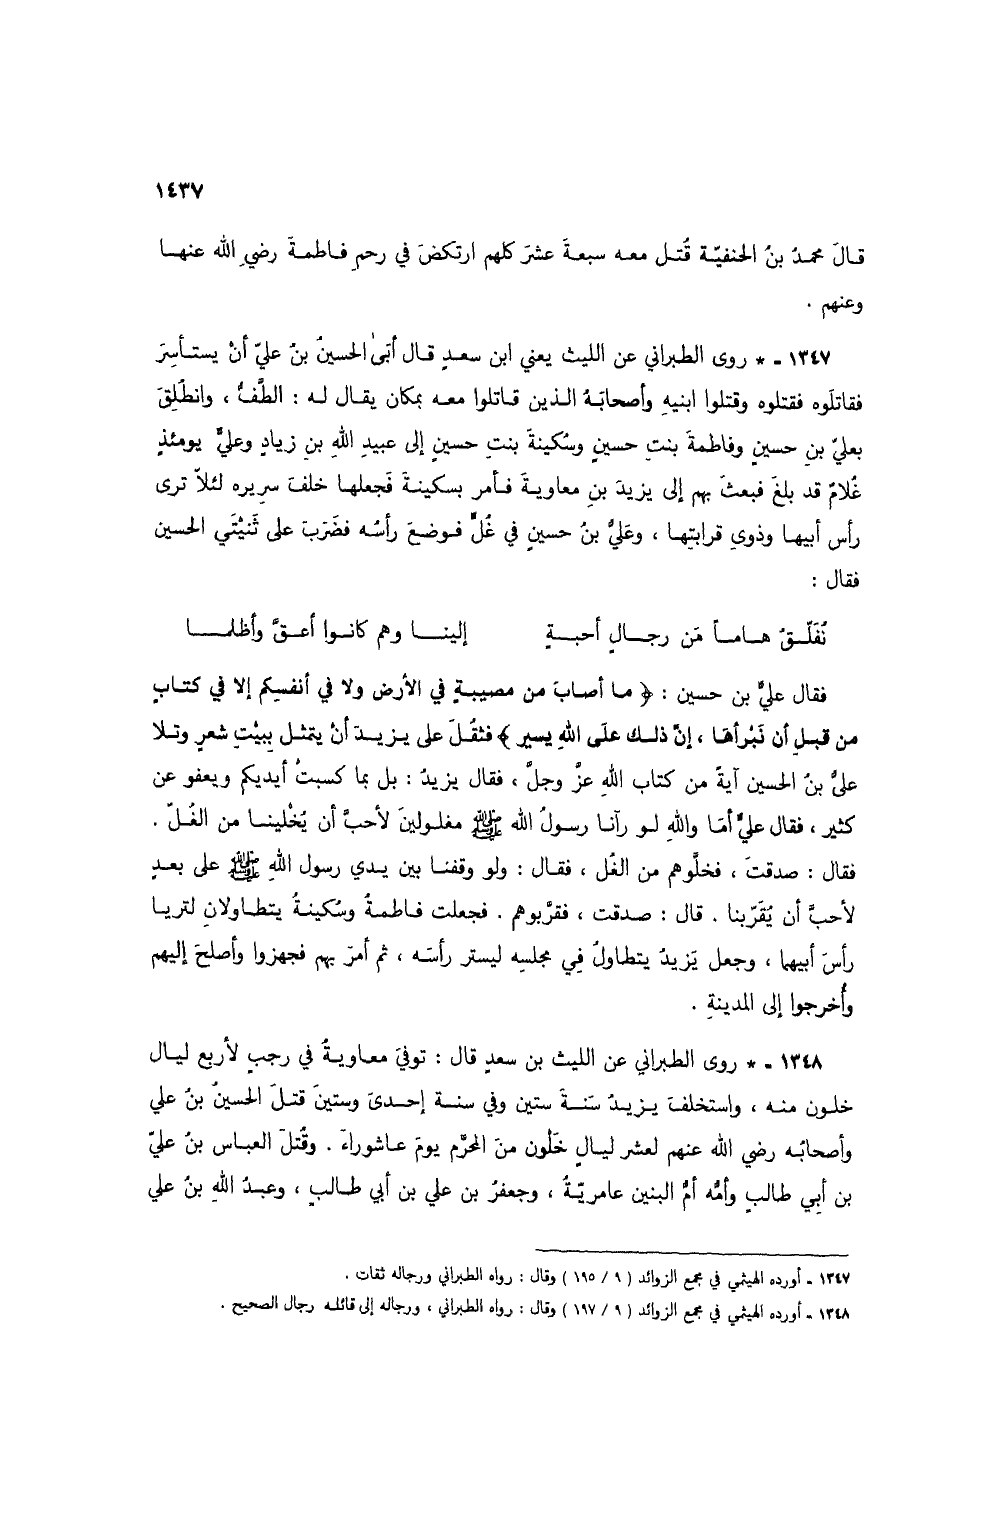 ١٤٣٧
قالَ محمدُ بنُ الحنفيّة قُتل معه سبعةَ عشرَ كلهم ارتكضَ في رحمِ فاطمةَ رضيِ الله عنها
وعنهم .
١٣٤٧ - * روى الطبراني عن الليث يعني ابن سعدٍ قال أبَىٰ الحسينُ بنُ عليّ أنْ يستأسِرَ
فقاتلَوه فقتلوه وقتلوا ابنيهِ وأصحابَهُ الذين قاتلوا معه بمكان يقال له : الطَّفُّ ، وانطُلِقَ
بعليّ بنِ حسينٍ وفاطمةَ بنتِ حسينٍ وسُكينةَ بنتِ حسينٍ إلى عبيدِ اللهِ بنِ زيادٍ وعليٌّ يومئذٍ
غُلامٌ قد بلغَ فبعثَ بهم إلى يزيدَ بنِ معاويةَ فأمر بسكينةَ فجعلها خلفَ سريره لئلاّ ترى
رأس أبيها وذوي قرابتِها ، وعَليُّ بنُ حسينٍ في غُلٍّ فوضعَ رأسُه فضَرَبَ على ثَنيْتَي الحسين
فقال :
نُفَلّقُ هاماً مَن رجالٍ أحبةٍ إلينا وهم كانوا أعقَّ وأظلما
فقال عليُّ بن حسين : ﴿ ما أصابَ من مصيبةٍ في الأرض ولا في أنفسِكم إلا في كتابٍ
من قبلِ أن نَبْرأهَا ، إنّ ذلك علَى اللهِ يسير ﴾ فثقُلَ على يزيدَ أنْ يتمثل بِبيْتِ شعرٍ وتلا
عليُّ بنُ الحسين آيةً من كتاب اللهِ عزَّ وجلَّ ، فقال يزيدُ : بل بما كسبتُ أيديكم ويعفو عن
كثير ، فقال عليٌّ أمَا واللهِ لو رآنا رسولُ الله ﷺ مغلولينَ لأحبَّ أن يُخْلينا من الغُلّ .
فقال : صدقتَ ، فخلَّوهم من الغُل ، فقال : ولو وقفنا بين يدي رسول اللهِ ﷺ على بعدٍ
لأحبَّ أن يُقَرّبنا . قال : صدقت ، فقرَّبوهم . فجعلت فاطمةُ وسُكينةُ يتطاولانِ لتريا
رأسَ أبيهما ، وجعل يَزيدُ يتطاولُ فِي مجلسِه ليستر رأسَه ، ثم أمرَ بهم فجهزوا وأصلحَ إليهم
وأُخرجوا إلى المدينةِ .
١٣٤٨ - * روى الطبراني عن الليث بن سعدٍ قال : توفيَ معاويةُ في رجبٍ لأربع ليال
خلون منه ، واستخلفَ يزيدُ سَنةَ ستين وفي سنة إحدىَ وستينَ قتلَ الحسينُ بنُ علي
وأصحابُه رضي الله عنهم لعشر ليالٍ خَلُون منَ المحرَّم يومَ عاشوراءَ . وقُتلَ العباس بنُ عليّ
بن أبِي طالبٍ وأمُّه أمُّ البنين عامريّةُ ، وجعفرُ بن علي بن أبي طالبٍ ، وعبدُ اللهِ بنُ علي
١٣٤٧ - أورده الهيثمي في مجمع الزوائد ( ٩ / ١٩٥ ) وقال : رواه الطبراني ورجاله ثقات .
١٣٤٨ - أورده الهيثمي في مجمع الزوائد ( ٩ / ١٩٧ ) وقال : رواه الطبراني ، ورجاله إلى قائله رجال الصحيح .